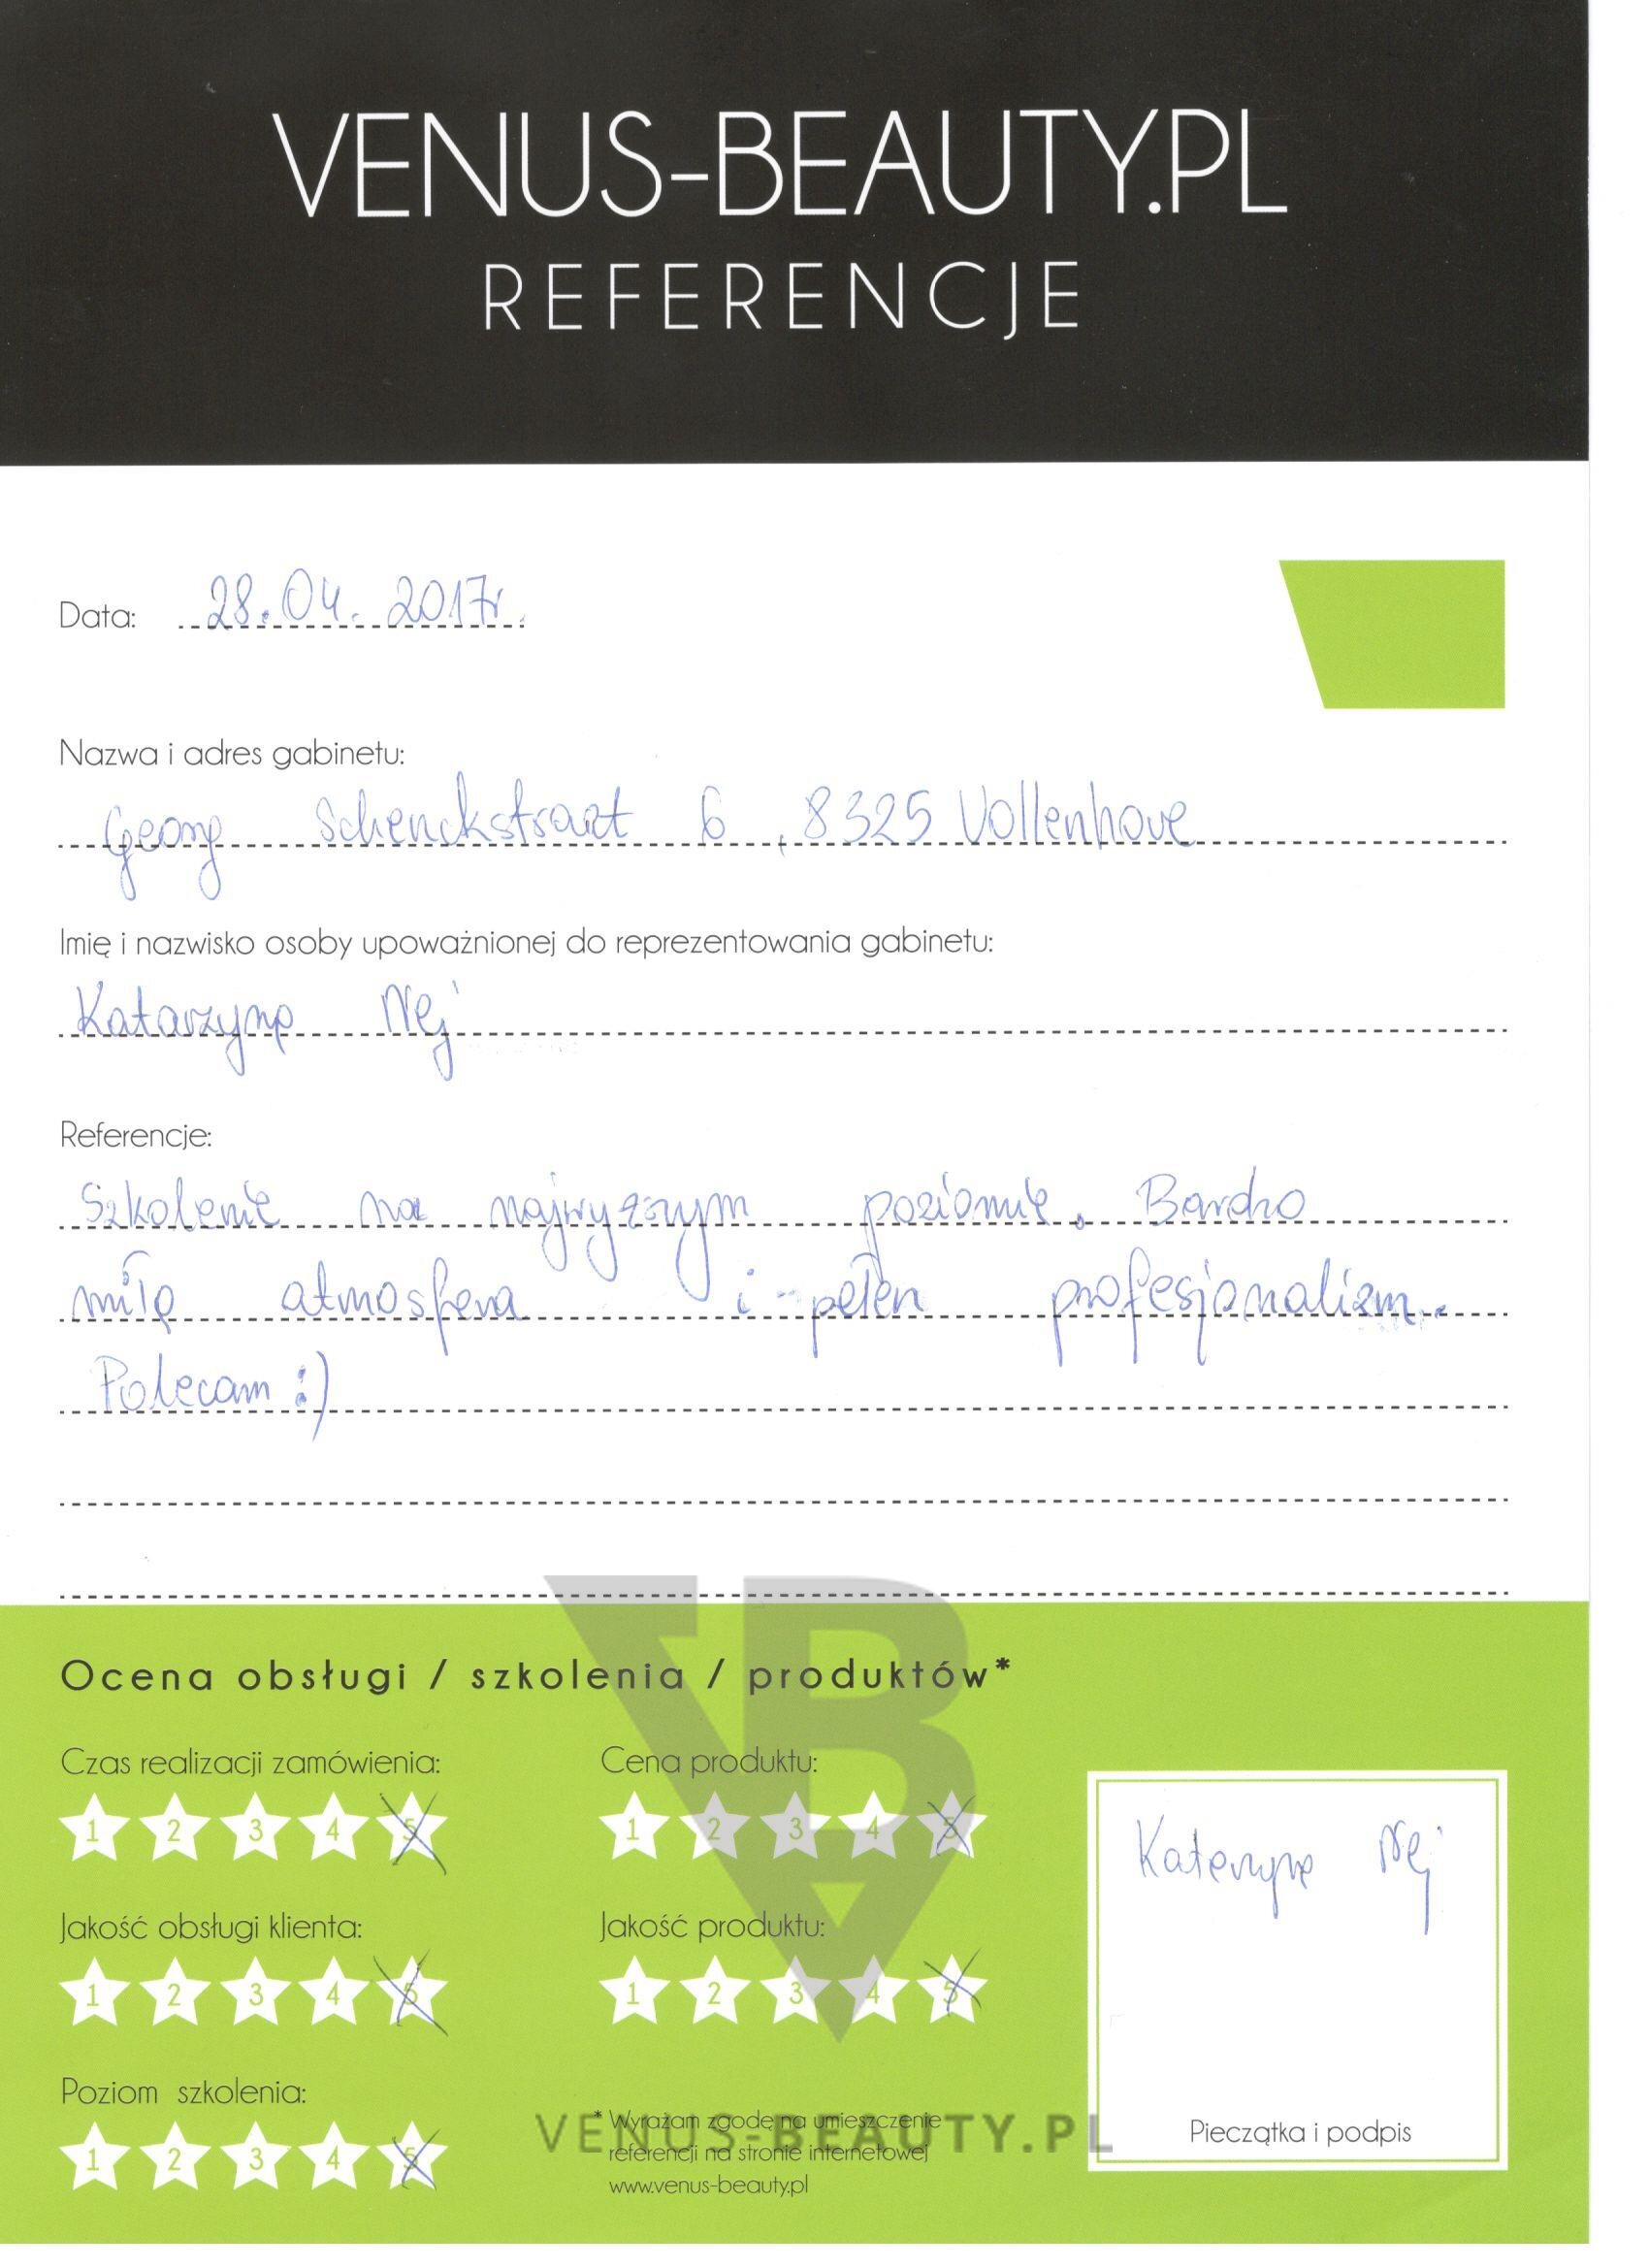 VENUS-BEAUTY.PL
REFERENCJE
Data: 28.04.2017r.
Nazwa i adres gabinetu:
Georg Schenckstraat 6, 8325 Vollenhove
Imię i nazwisko osoby upoważnionej do reprezentowania gabinetu:
Katarzyna Nej
Referencje:
Szkolenie na najwyższym poziomie. Bardzo
miła atmosfera i pełen profesjonalizm..
Polecam :)
Ocena obsługi / szkolenia / produktów*
Czas realizacji zamówienia:
1 2 3 4 5
Cena produktu:
1 2 3 4 5
Jakość obsługi klienta:
1 2 3 4 5
Jakość produktu:
1 2 3 4 5
Poziom szkolenia:
1 2 3 4 5
* Wyrażam zgodę na umieszczenie
referencji na stronie internetowej
www.venus-beauty.pl
Katarzyna Nej
Pieczątka i podpis
VB
VENUS-BEAUTY.PL